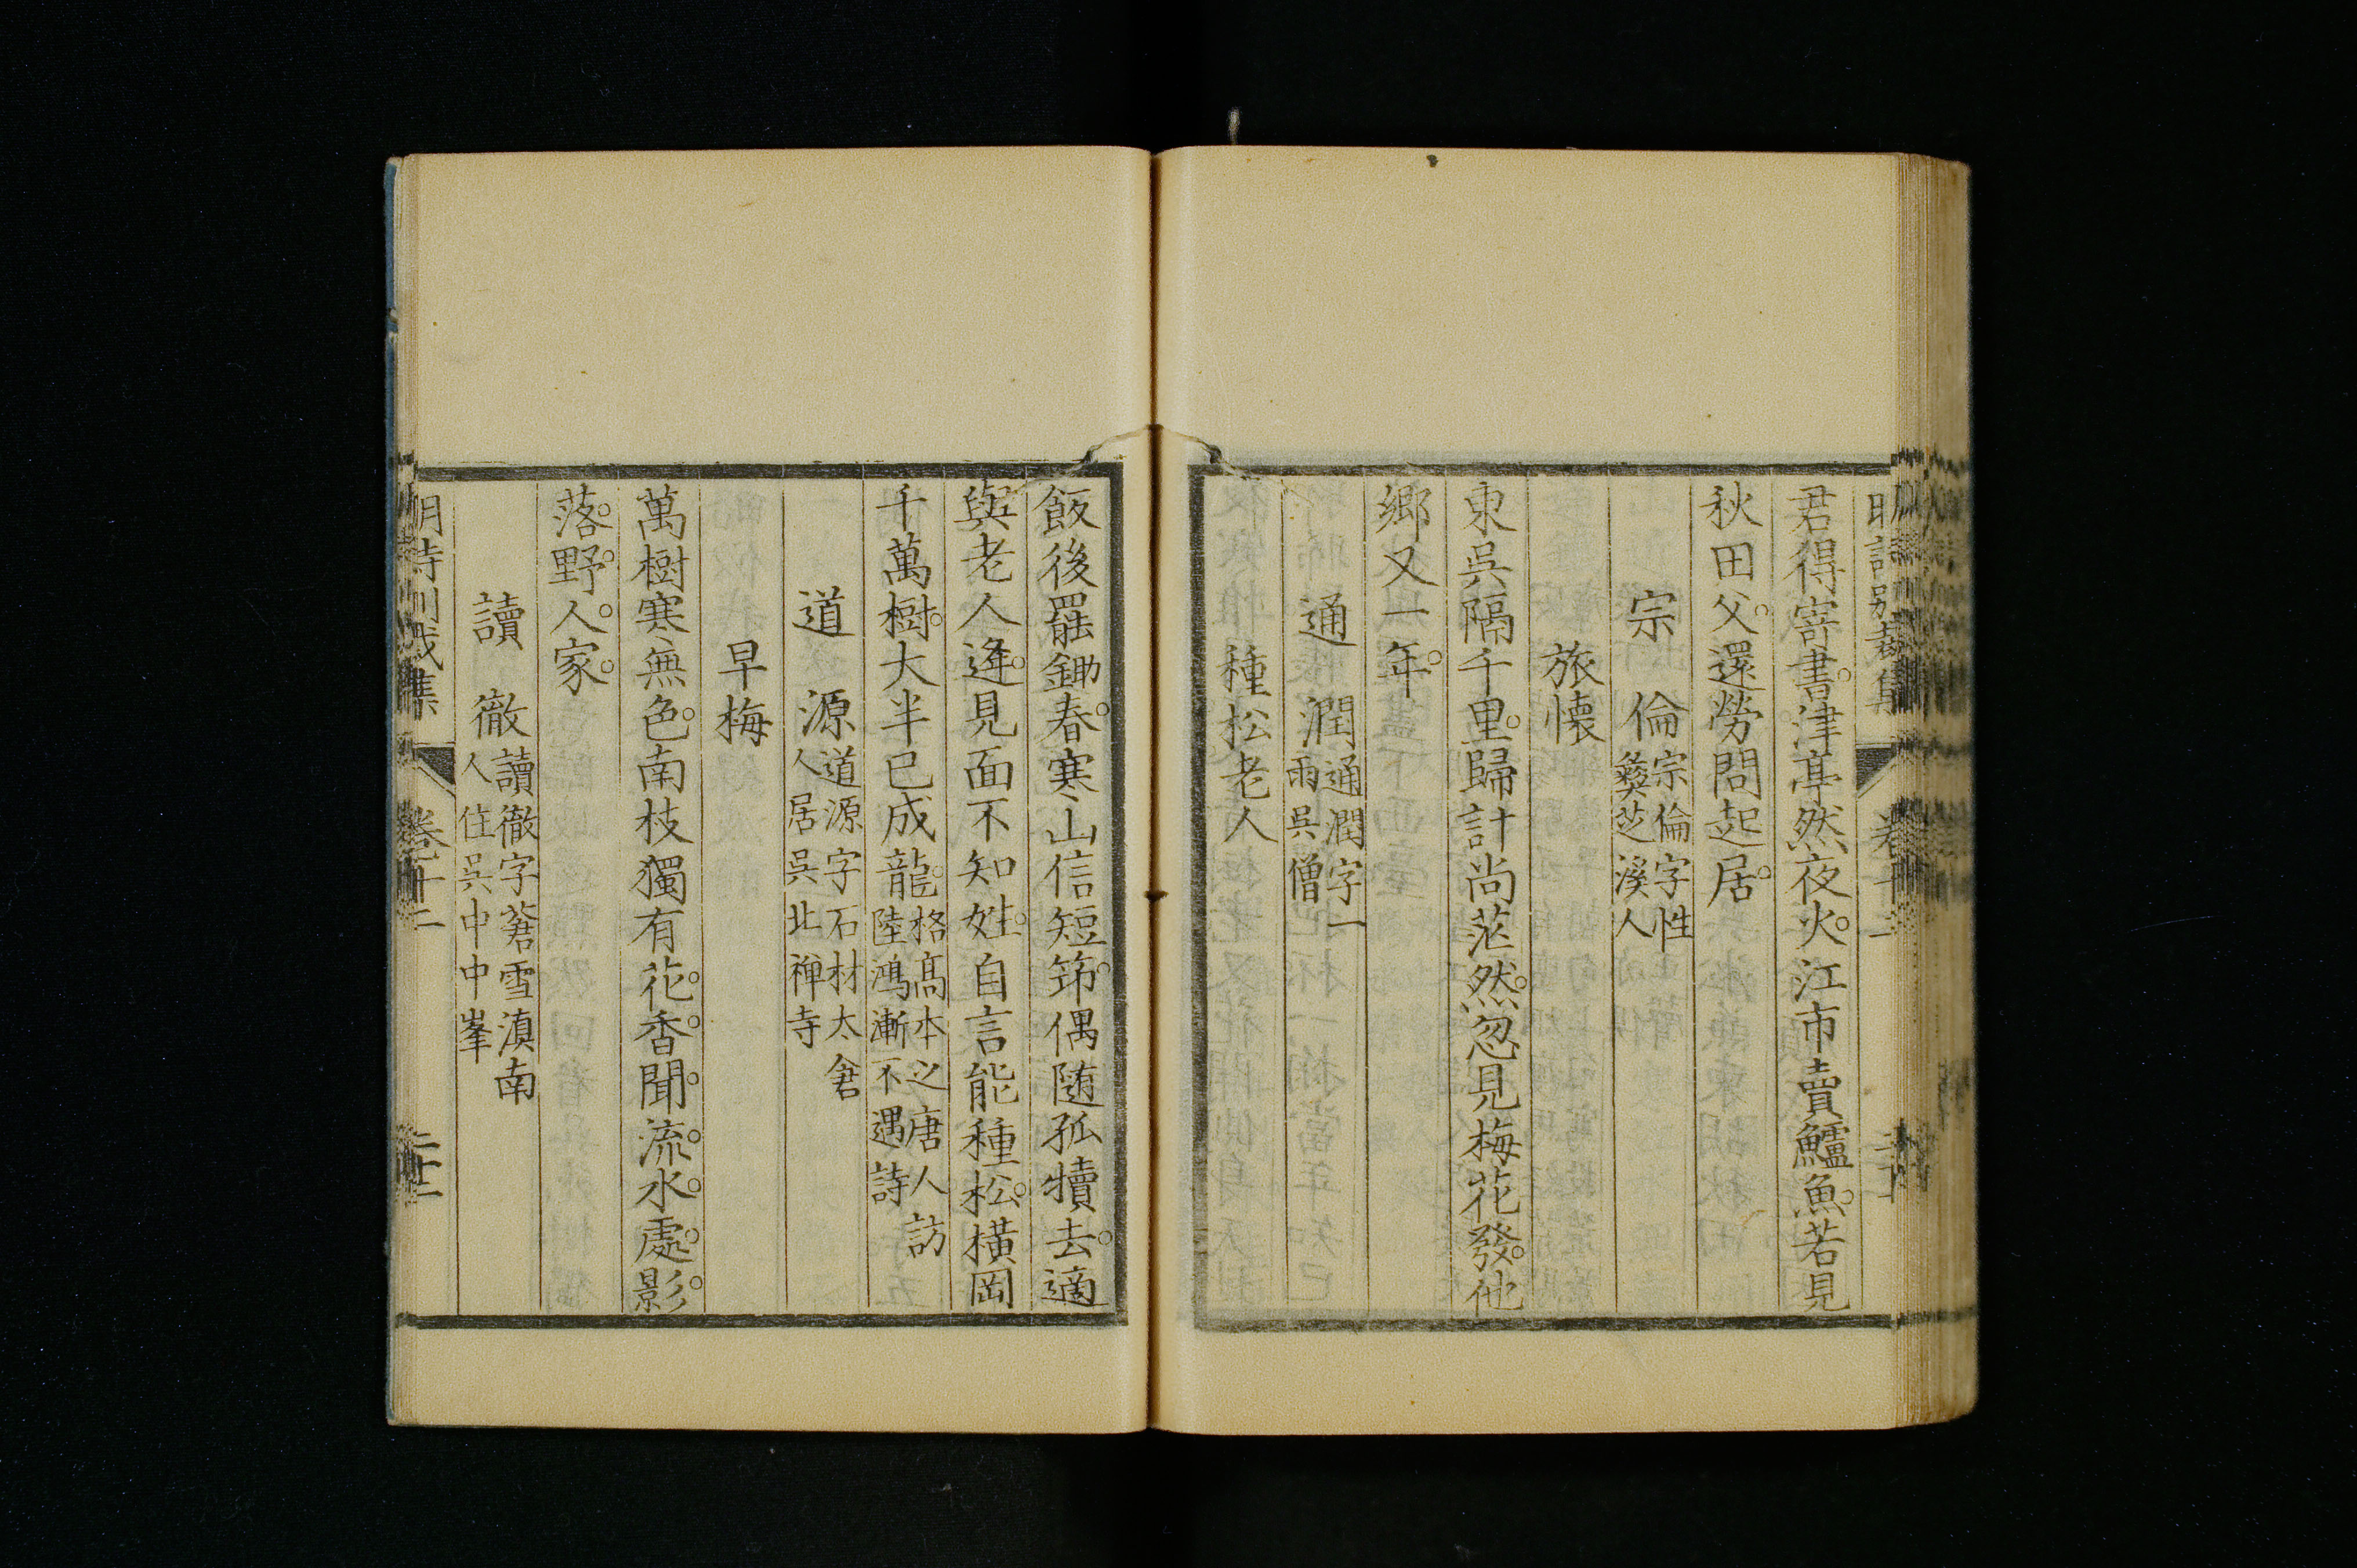 君得寄書津亭然夜火江市賣鱸魚若見
秋田父還勞問起居
宗 倫宗倫字性
彝芝溪人
旅懷
東吳隔千里歸計尚茫然忽見梅花發他
鄉又一年
通 潤通潤字一
雨吳僧
種松老人
飯後罷鋤春寒山信短笻偶随孤犢去適
與老人逢見面不知姓自言能種松橫岡
千萬樹大半已成龍格髙本之唐人訪
陸鴻漸不遇詩
道 源道源字石材太倉
人居吳北禅寺
早梅
萬樹寒無色南枝獨有花香聞流水處影
落野人家
讀 徹讀徹字蒼雪滇南
人住吳中中峯
明詩別裁集 卷十二